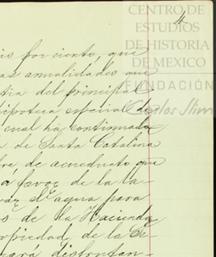 4
CENTRO DE
ESTUDIOS
DE HISTORIA
DE MEXICO
FUNDACIÓN
Carlos Slim
por ciento, que
as anualidades que
tia del principal
hipoteca especial de
cual ha continuado
a de Santa Catalina
de acueducto que
á favor de la
de agua para
de la Hacienda
propiedad, de la
disfrutan-